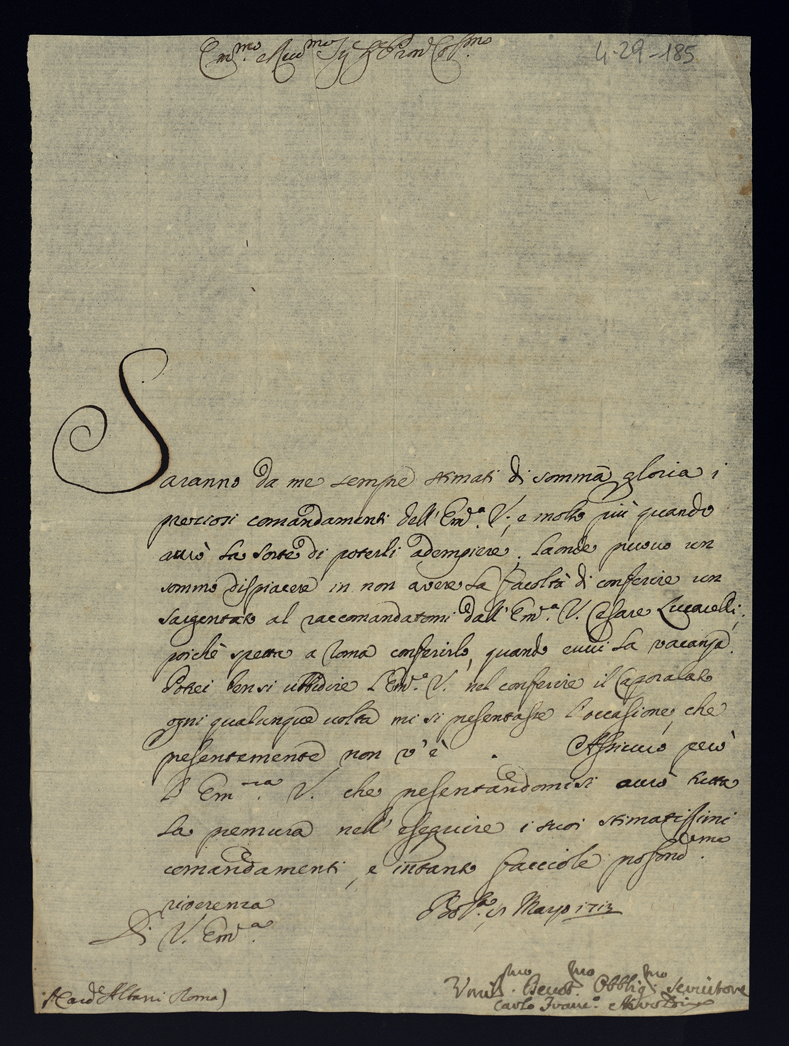 Em.mo e Reu.mo Sig.r Pron Col.mo
4-29-185
Saranno da me sempre stimati di somma gloria i
preziosi comandamenti dell'Em.a V., e molto più quando
aurò la sorte di poterli adempiere. Laonde prouo un
sommo dispiacere in non avere la facoltà di conferire un
Sargentato al raccomandatomi dall'Em.a V. Cesare
poichè spetta a Roma conferirlo, quando euui la vacanza.
Potrei bensi ubbidire l'Em.a V. nel conferire il Caporalato
ogni qualunque uolta mi si presentasse l'occasione, che
presentemente non v'è. Assicuro però
l'Em.za V. che presentandomisi aurò tutta
la premura nell'eseguire i suoi stimatissimi
comandamenti, e intanto facciole profond.ma
riverenza
Di V. Em.a
Marzo 1713
(Card.e Albani Roma)
Umil.mo Deuot.mo Obblig.mo Seruitore
Carlo